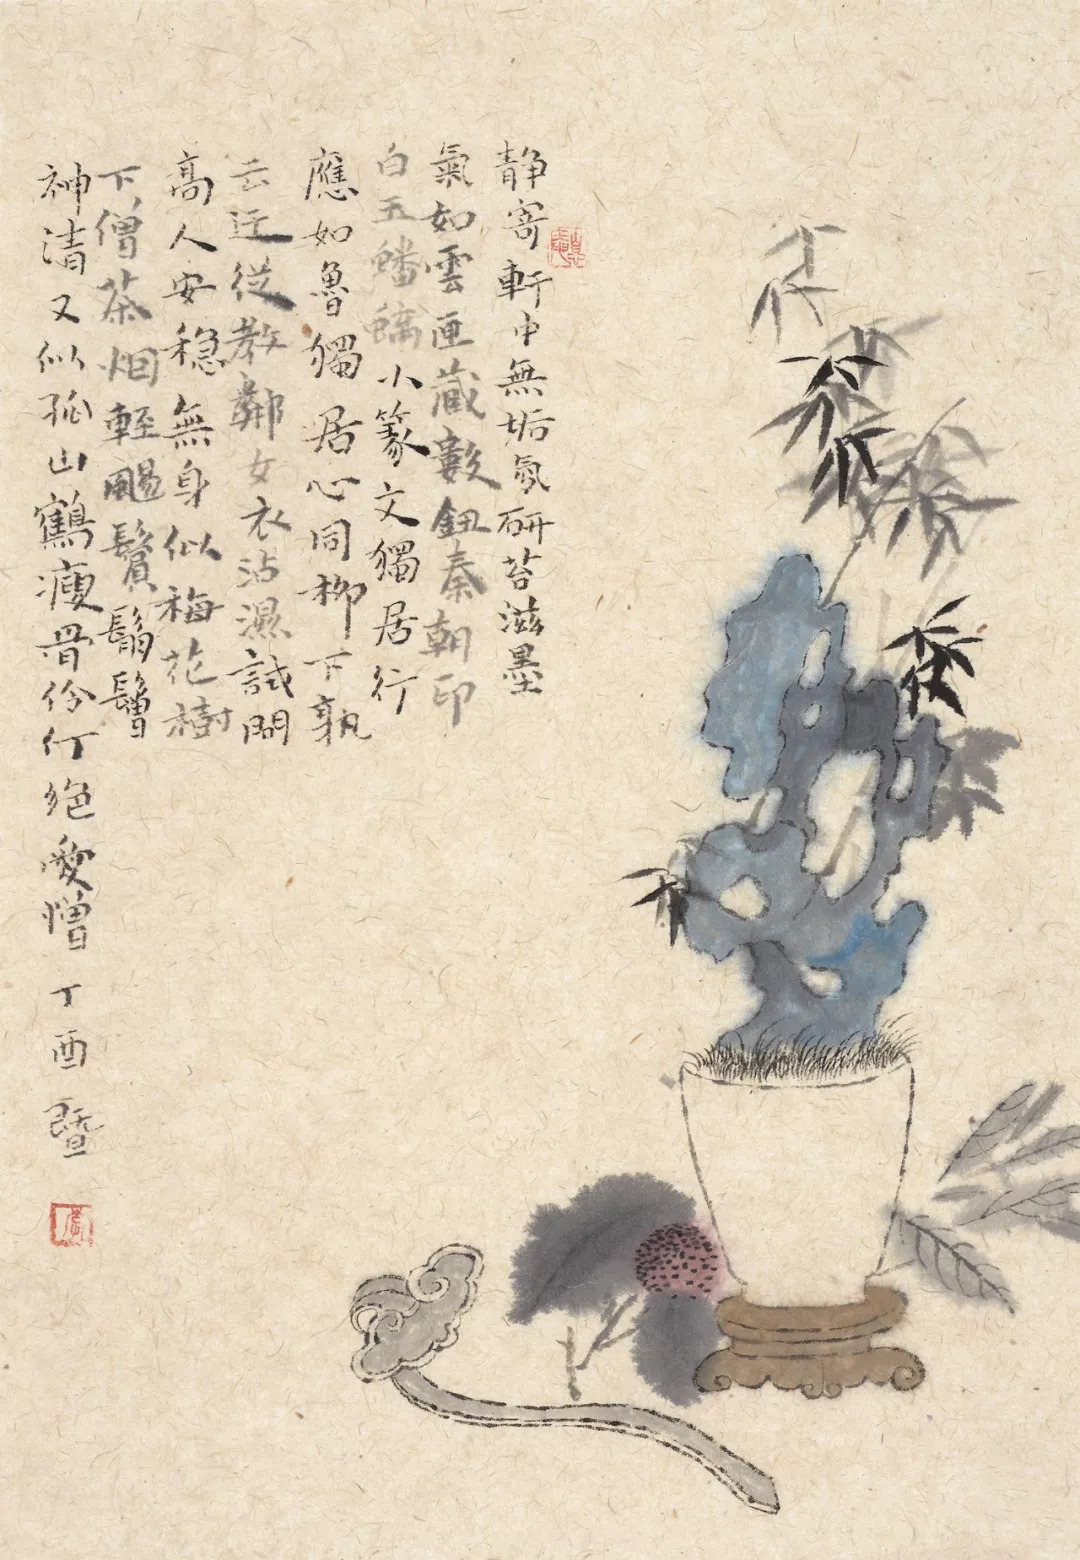 静寄軒中無垢氛研苔滋墨
氣如雲匣藏數鈕秦朝印
白玉蟠螭小篆文獨居行
應如魯獨居心同柳下孰
云迂從教鄰女衣沾濕試問
高人安穩無身似梅花樹
下僧茶烟輕颺鬢鬅鬙
神清又似孤山鶴瘦骨伶仃絕愛憎 丁酉 暨